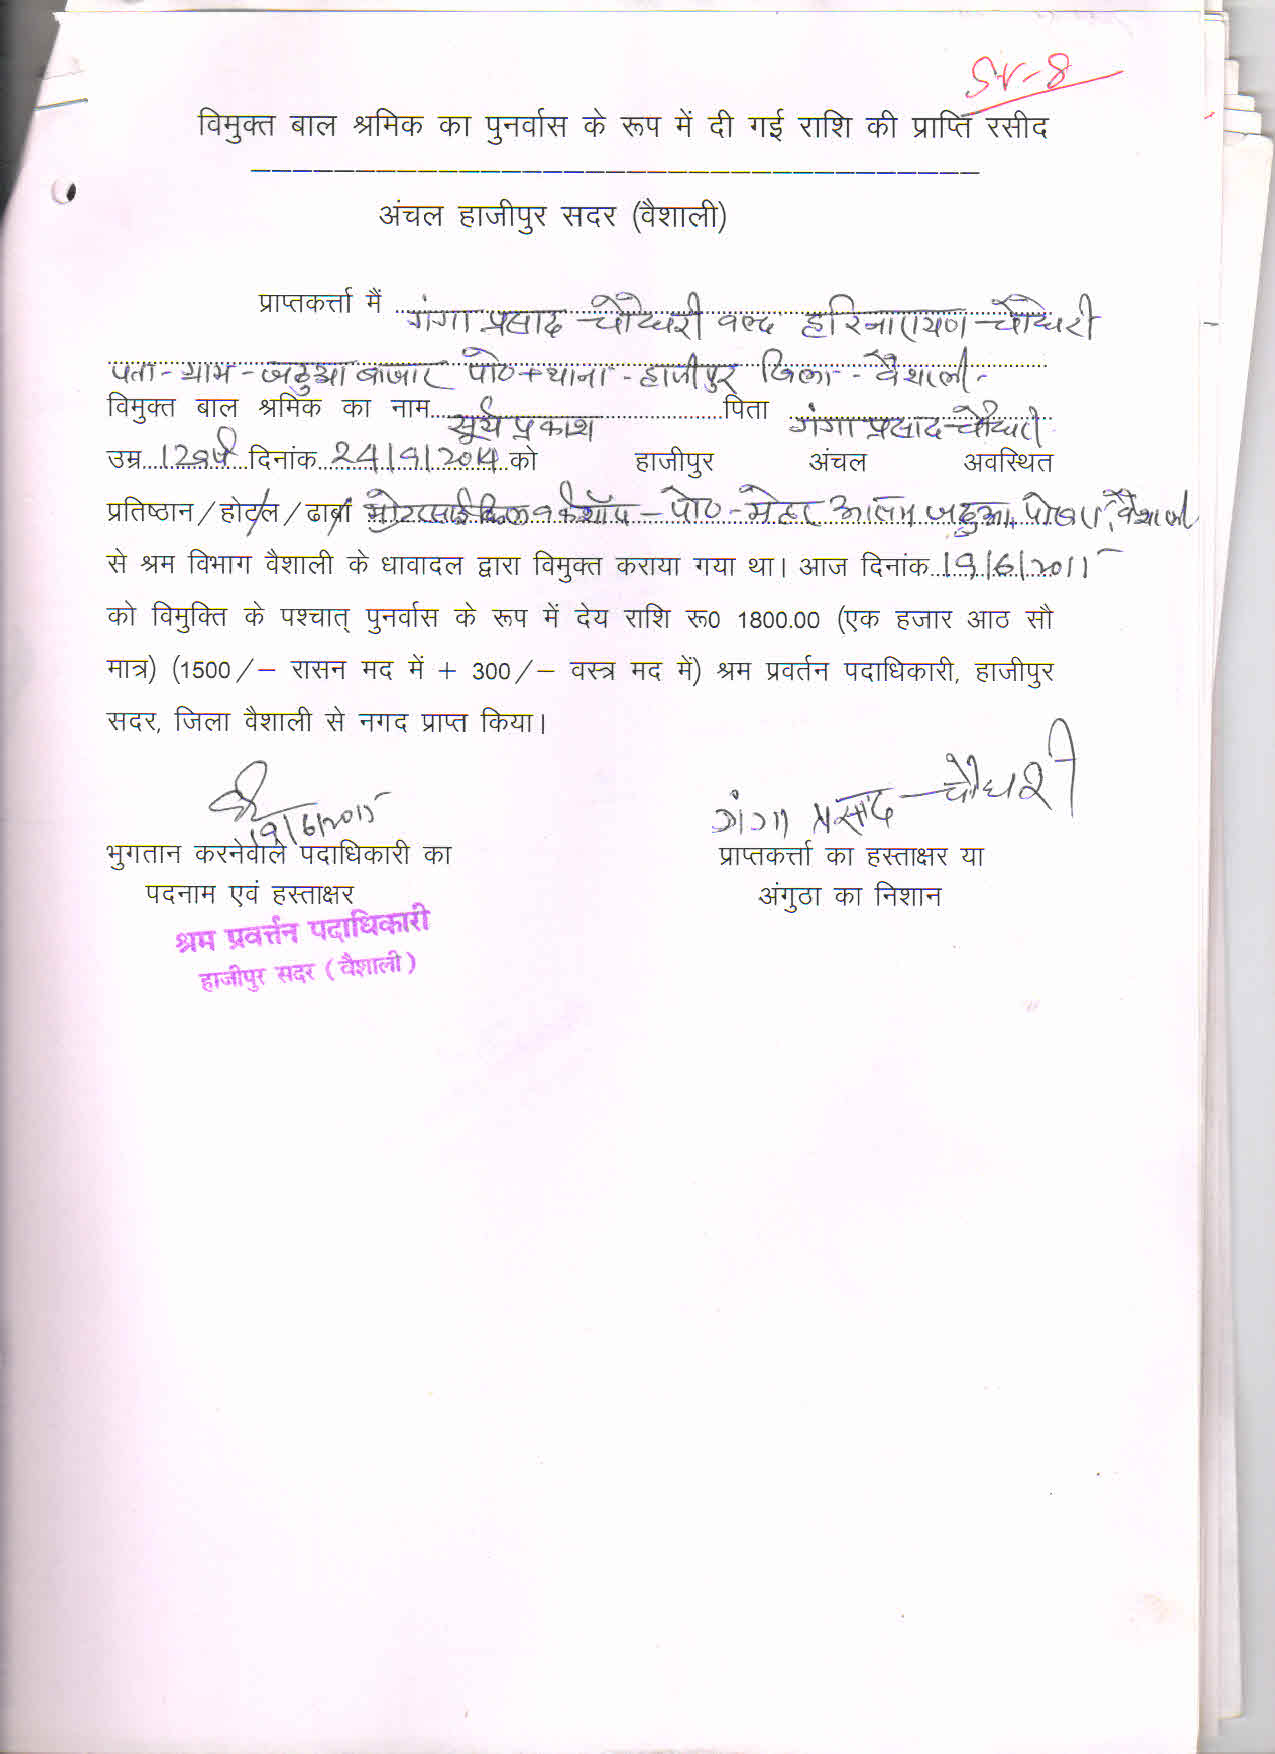 SV-8
विमुक्त बाल श्रमिक का पुनर्वास के रूप में दी गई राशि की प्राप्ति रसीद
अंचल हाजीपुर सदर (वैशाली)
प्राप्तकर्त्ता मैं गंगा प्रसाद चौधरी वल्द हरिनारायण चौधरी
पता - ग्राम - जढुआ बाजार पो० + थाना - हाजीपुर जिला - वैशाली -
विमुक्त बाल श्रमिक का नाम सूर्य प्रकाश पिता गंगा प्रसाद चौधरी
उम्र 12 वर्ष दिनांक 24/9/2014 को हाजीपुर अंचल अवस्थित
प्रतिष्ठान/होटल/ढाबा मोटरसाईकिल वर्कशॉप - आलम जढुआ, पोखरा, वैशाली
से श्रम विभाग वैशाली के धावादल द्वारा विमुक्त कराया गया था। आज दिनांक 19/6/2015
को विमुक्ति के पश्चात् पुनर्वास के रूप में देय राशि रू0 1800.00 (एक हजार आठ सौ
मात्र) (1500/– रासन मद में + 300/– वस्त्र मद में) श्रम प्रवर्तन पदाधिकारी, हाजीपुर
सदर, जिला वैशाली से नगद प्राप्त किया।
19/6/2015
गंगा प्रसाद चौधरी
भुगतान करनेवाले पदाधिकारी का
पदनाम एवं हस्ताक्षर
प्राप्तकर्त्ता का हस्ताक्षर या
अंगुठा का निशान
श्रम प्रवर्त्तन पदाधिकारी
हाजीपुर सदर (वैशाली)